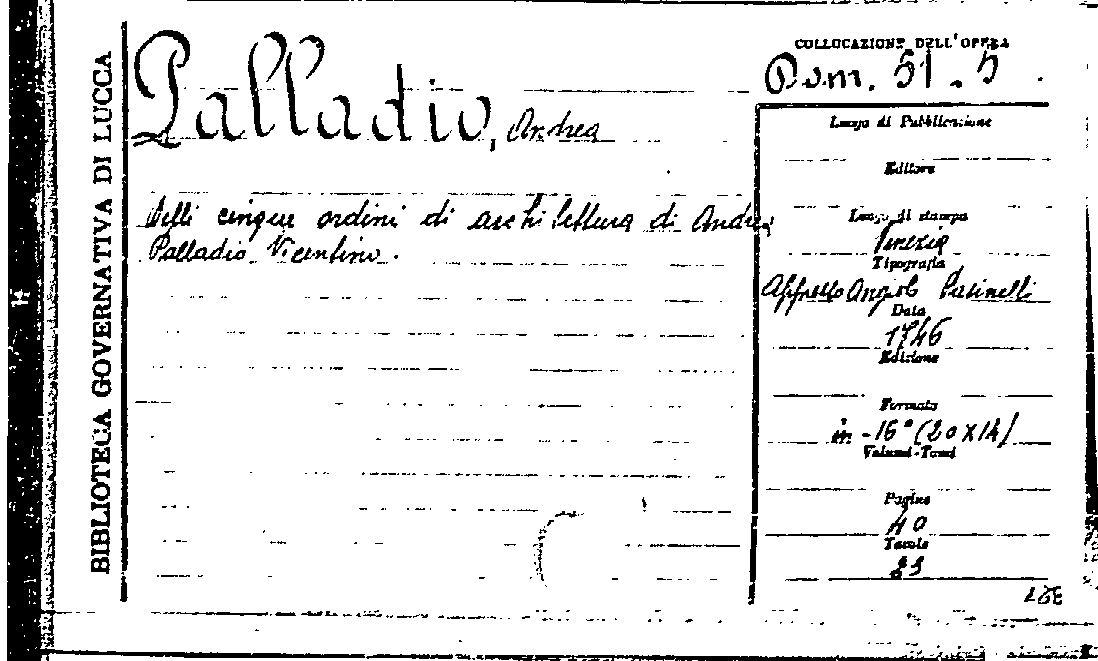 BIBLIOTECA GOVERNATIVA DI LUCCA
Palladio, Andrea
Delli cinque ordini di architettura di Andrea
Palladio Vicentino.
COLLOCAZIONE DELL'OPERA
Dom. 51.5
Luogo di Pubblicazione
Editore
Luogo di stampa
Venezia
Tipografia
Appresso Angiolo Pasinelli
Data
1746
Edizione
Formato
in-16° (20x14)
Volumi-Tomi
Pagine
40
Tavole